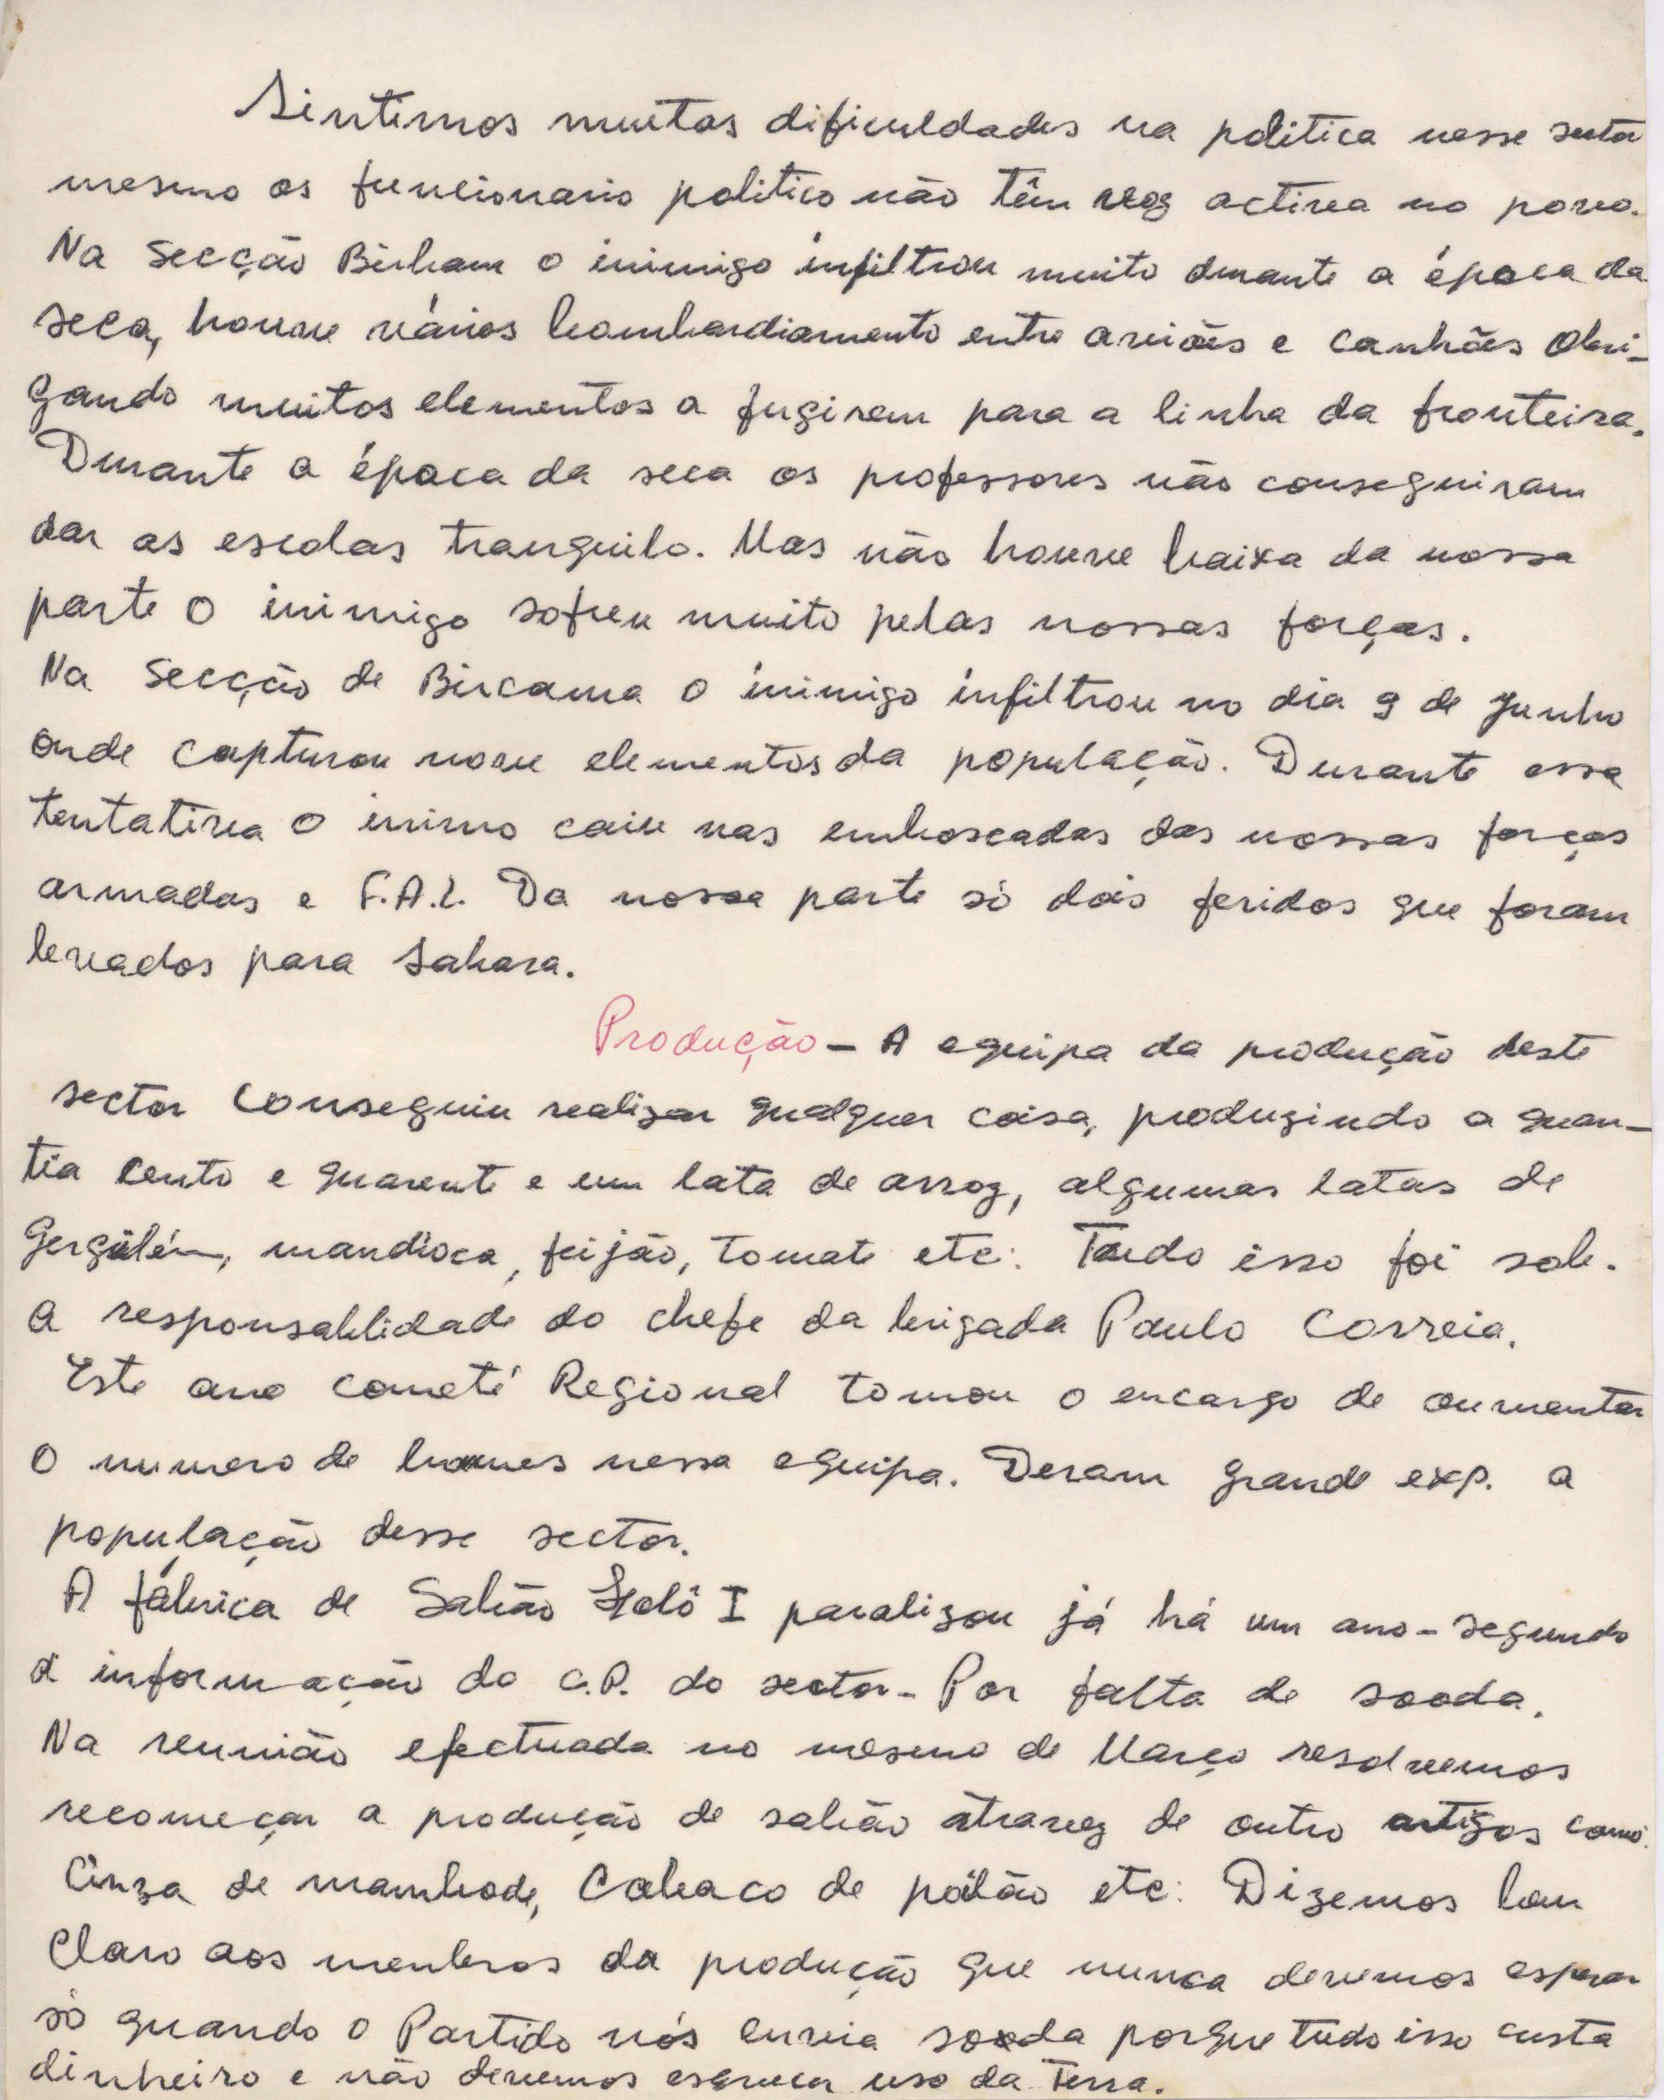 Sintimos muitas dificuldades na politica nesse sector
mesmo os funcionario politico não têm voz activa no povo.
Na Secção Birham o inimigo infiltrou muito durante a época da
seca, houve vários bombardiamento entre aviões e canhões Obri-
gando muitos elementos a fugirem para a linha da fronteira.
Durante a época da seca os professores não conseguiram
dar as escolas tranquilo. Mas não houve baixa da nossa
parte O inimigo sofreu muito pelas nossas forças.
Na Secção de Bircama O inimigo infiltrou no dia 9 de Junho
onde capturou nove elementos da população. Durante essa
tentativa O inimo caiu nas emboscadas das nossas forças
armadas e F.A.L. Da nossa parte só dois feridos que foram
levados para Sahara.
Produção - A equipa da produção deste
sector conseguiu realizar qualquer coisa, produzindo a quan-
tia cento e quarente e um lata de arroz, algumas latas de
, mandioca, feijão, tomate etc: Tudo isso foi sob.
a responsablidade do chefe da brigada Paulo Correia.
Este ano cometé Regional tomou o encargo de aumentar
O numero de homes nessa equipa. Deram grande exp. a
população desse sector.
A fábrica de Sabão I paralizou já há um ano - segundo
a informação do C.P. do sector - Por falta de sooda.
Na reunião efectuada no mesmo de Março resolvemos
recomeçar a produção de sabão atravez de outro artigos como:
Cinza de mambode, Cabaco de poilão etc: Dizemos bem
Claro aos membros da produção que nunca devemos esperar
só quando o Partido nós envia sooda porque tudo isso custa
dinheiro e não devemos esquecer uso da Terra.